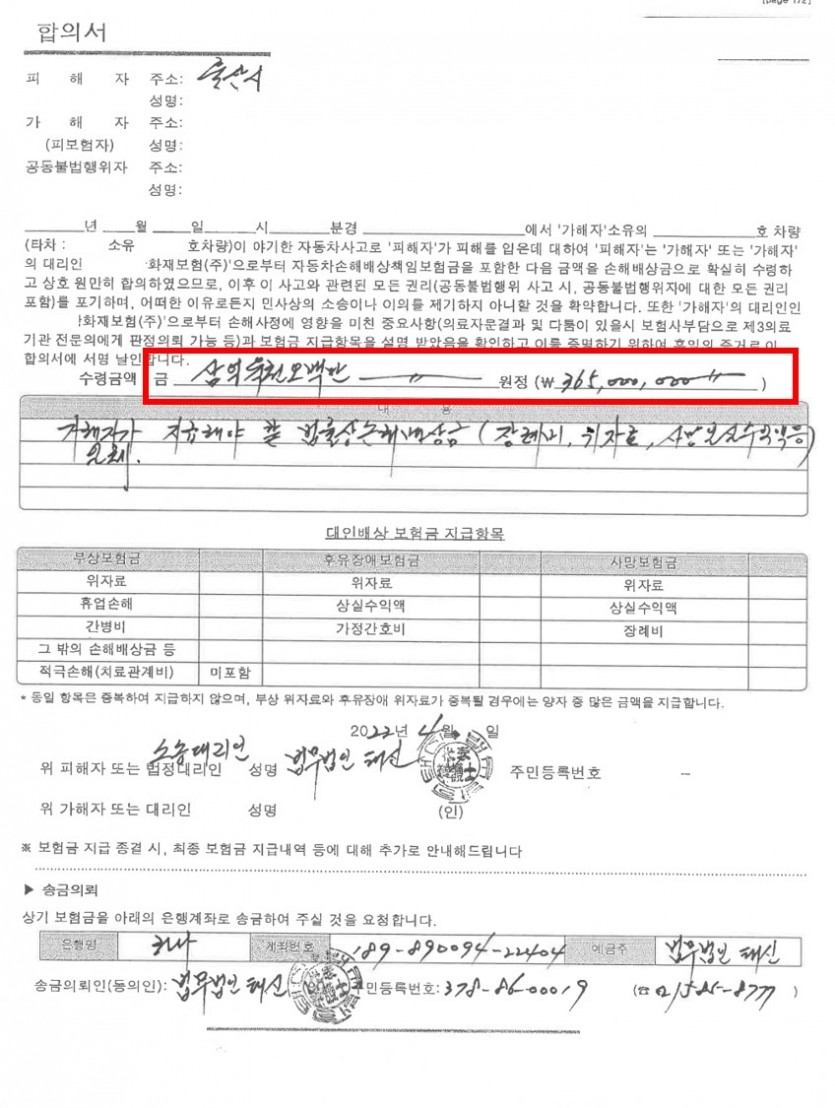 [page 1/2]
합의서
피 해 자 주소: 울산시
성명:
가 해 자 주소:
(피보험자) 성명:
공동불법행위자 주소:
성명:
년 월 일 시 분경 에서 '가해자'소유의 호 차량
(타차 : 소유 호차량)이 야기한 자동차사고로 '피해자'가 피해를 입은데 대하여 '피해자'는 '가해자' 또는 '가해자'
의 대리인 화재보험(주)'으로부터 자동차손해배상책임보험금을 포함한 다음 금액을 손해배상금으로 확실히 수령하
고 상호 원만히 합의하였으므로, 이후 이 사고와 관련된 모든 권리(공동불법행위 사고 시, 공동불법행위자에 대한 모든 권리
포함)를 포기하며, 어떠한 이유로든지 민사상의 소송이나 이의를 제기하지 아니할 것을 확약합니다. 또한 '가해자'의 대리인인
화재보험(주)'으로부터 손해사정에 영향을 미친 중요사항(의료자문결과 및 다툼이 있을시 보험사부담으로 제3의료
기관 전문의에게 판정의뢰 가능 등)과 보험금 지급항목을 설명 받았음을 확인하고 이를 증명하기 위하여 후일의 증거로 이
합의서에 서명 날인합니다.
수령금액 금 삼억육천오백만 〃 원정 (₩ 365,000,000 〃 )
내 용
가해자가 지급해야 할 법률상손해배상금 (장례비, 위자료, 사망상실수익액등)
일체.
대인배상 보험금 지급항목
부상보험금 후유장애보험금 사망보험금
위자료 위자료 위자료
휴업손해 상실수익액 상실수익액
간병비 가정간호비 장례비
그 밖의 손해배상금 등
적극손해(치료관계비) 미포함
* 동일 항목은 중복하여 지급하지 않으며, 부상 위자료와 후유장애 위자료가 중복될 경우에는 양자 중 많은 금액을 지급합니다.
2022년 4월 일
소송대리인
위 피해자 또는 법정대리인 성명 법무법인 태신 주민등록번호 –
위 가해자 또는 대리인 성명 (인)
※ 보험금 지급 종결 시, 최종 보험금 지급내역 등에 대해 추가로 안내해드립니다
▶ 송금의뢰
상기 보험금을 아래의 은행계좌로 송금하여 주실 것을 요청합니다.
은행명 하나 계좌번호 189-890094-22404 예금주 법무법인 태신
송금의뢰인(동의인): 법무법인 태신 주민등록번호: 378-86-00019 (☎ 02)585-8777 )